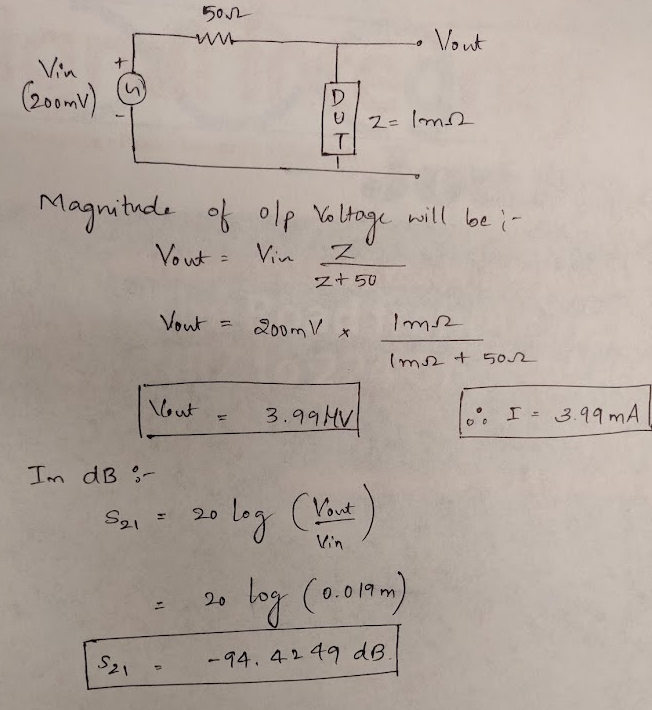 50Ω
Vout
Vin
(200mV)
+
-
DUT
Z = 1mΩ
Magnitude of o/p Voltage will be :-
Vout = Vin Z / Z + 50
Vout = 200mV x 1mΩ / 1mΩ + 50Ω
Vout = 3.99μV
∴ I = 3.99mA
In dB :-
S21 = 20 log (Vout / Vin)
= 20 log (0.019m)
S21 = -94.4249 dB.